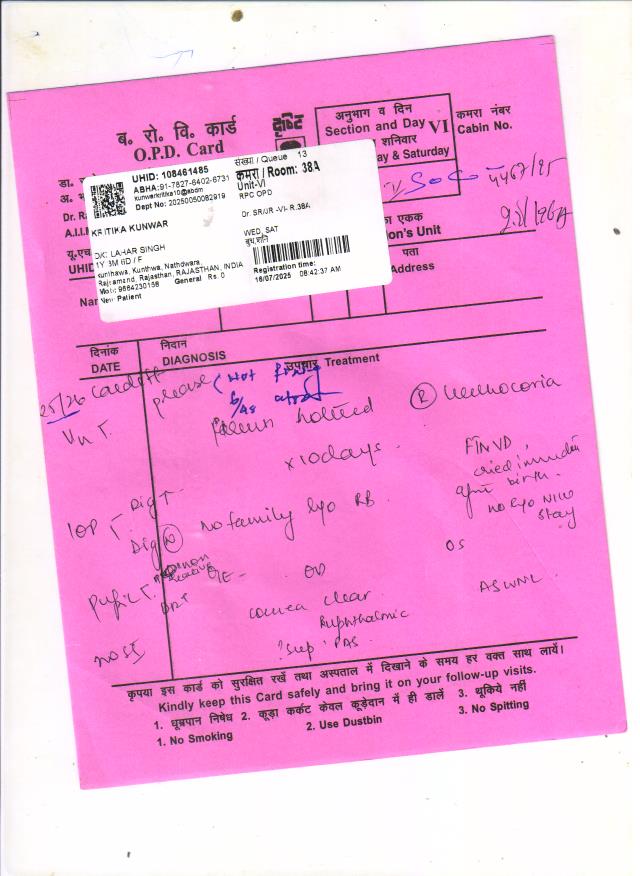 ब. रो. वि. कार्ड
O.P.D. Card
दृष्टि
अनुभाग व दिन
Section and Day VI
शनिवार
ay & Saturday
कमरा नंबर
Cabin No.
डा.
अ. भ
Dr. R
A.I.I.
यू.एच
UHID
UHID: 108461485
ABHA:91-7827-6402-6731
kunwarkritika10@abdm
Dept No: 20250050082919
KRITIKA KUNWAR
DK: LAHAR SINGH
1Y 3M 6D / F
kunthawa, Kunthwa, Nathdwara,
Rajsamand, Rajasthan, RAJASTHAN, INDIA
Mob: 9664230158 General Rs. 0
New Patient
संख्या / Queue 13
कमरा / Room: 38A
Unit-VI
RPC OPD
Dr. SR/JR -VI- R.38A
WED, SAT
बुध,शनि
Registration time:
16/07/2025 08:42:37 AM
का एकक
on's Unit
Nam
पता
Address
दिनांक
DATE
निदान
DIAGNOSIS
उपचार Treatment
25/26 please
Parents noticed (R) leukocoria
x 10 days.
FTNVD,
cried immediately
after birth.
no h/o NICU
stay
IOP T Dig T
Dig (N)
No family h/o RB
Pupil T.
O/E - OD OS
cornea clear ASWNL
Buphthalmic
? sup PAS
कृपया इस कार्ड को सुरक्षित रखें तथा अस्पताल में दिखाने के समय हर वक्त साथ लायें।
Kindly keep this Card safely and bring it on your follow-up visits.
1. धूम्रपान निषेध 2. कूड़ा कर्कट केवल कूड़ेदान में ही डालें 3. थूकिये नहीं
1. No Smoking 2. Use Dustbin 3. No Spitting